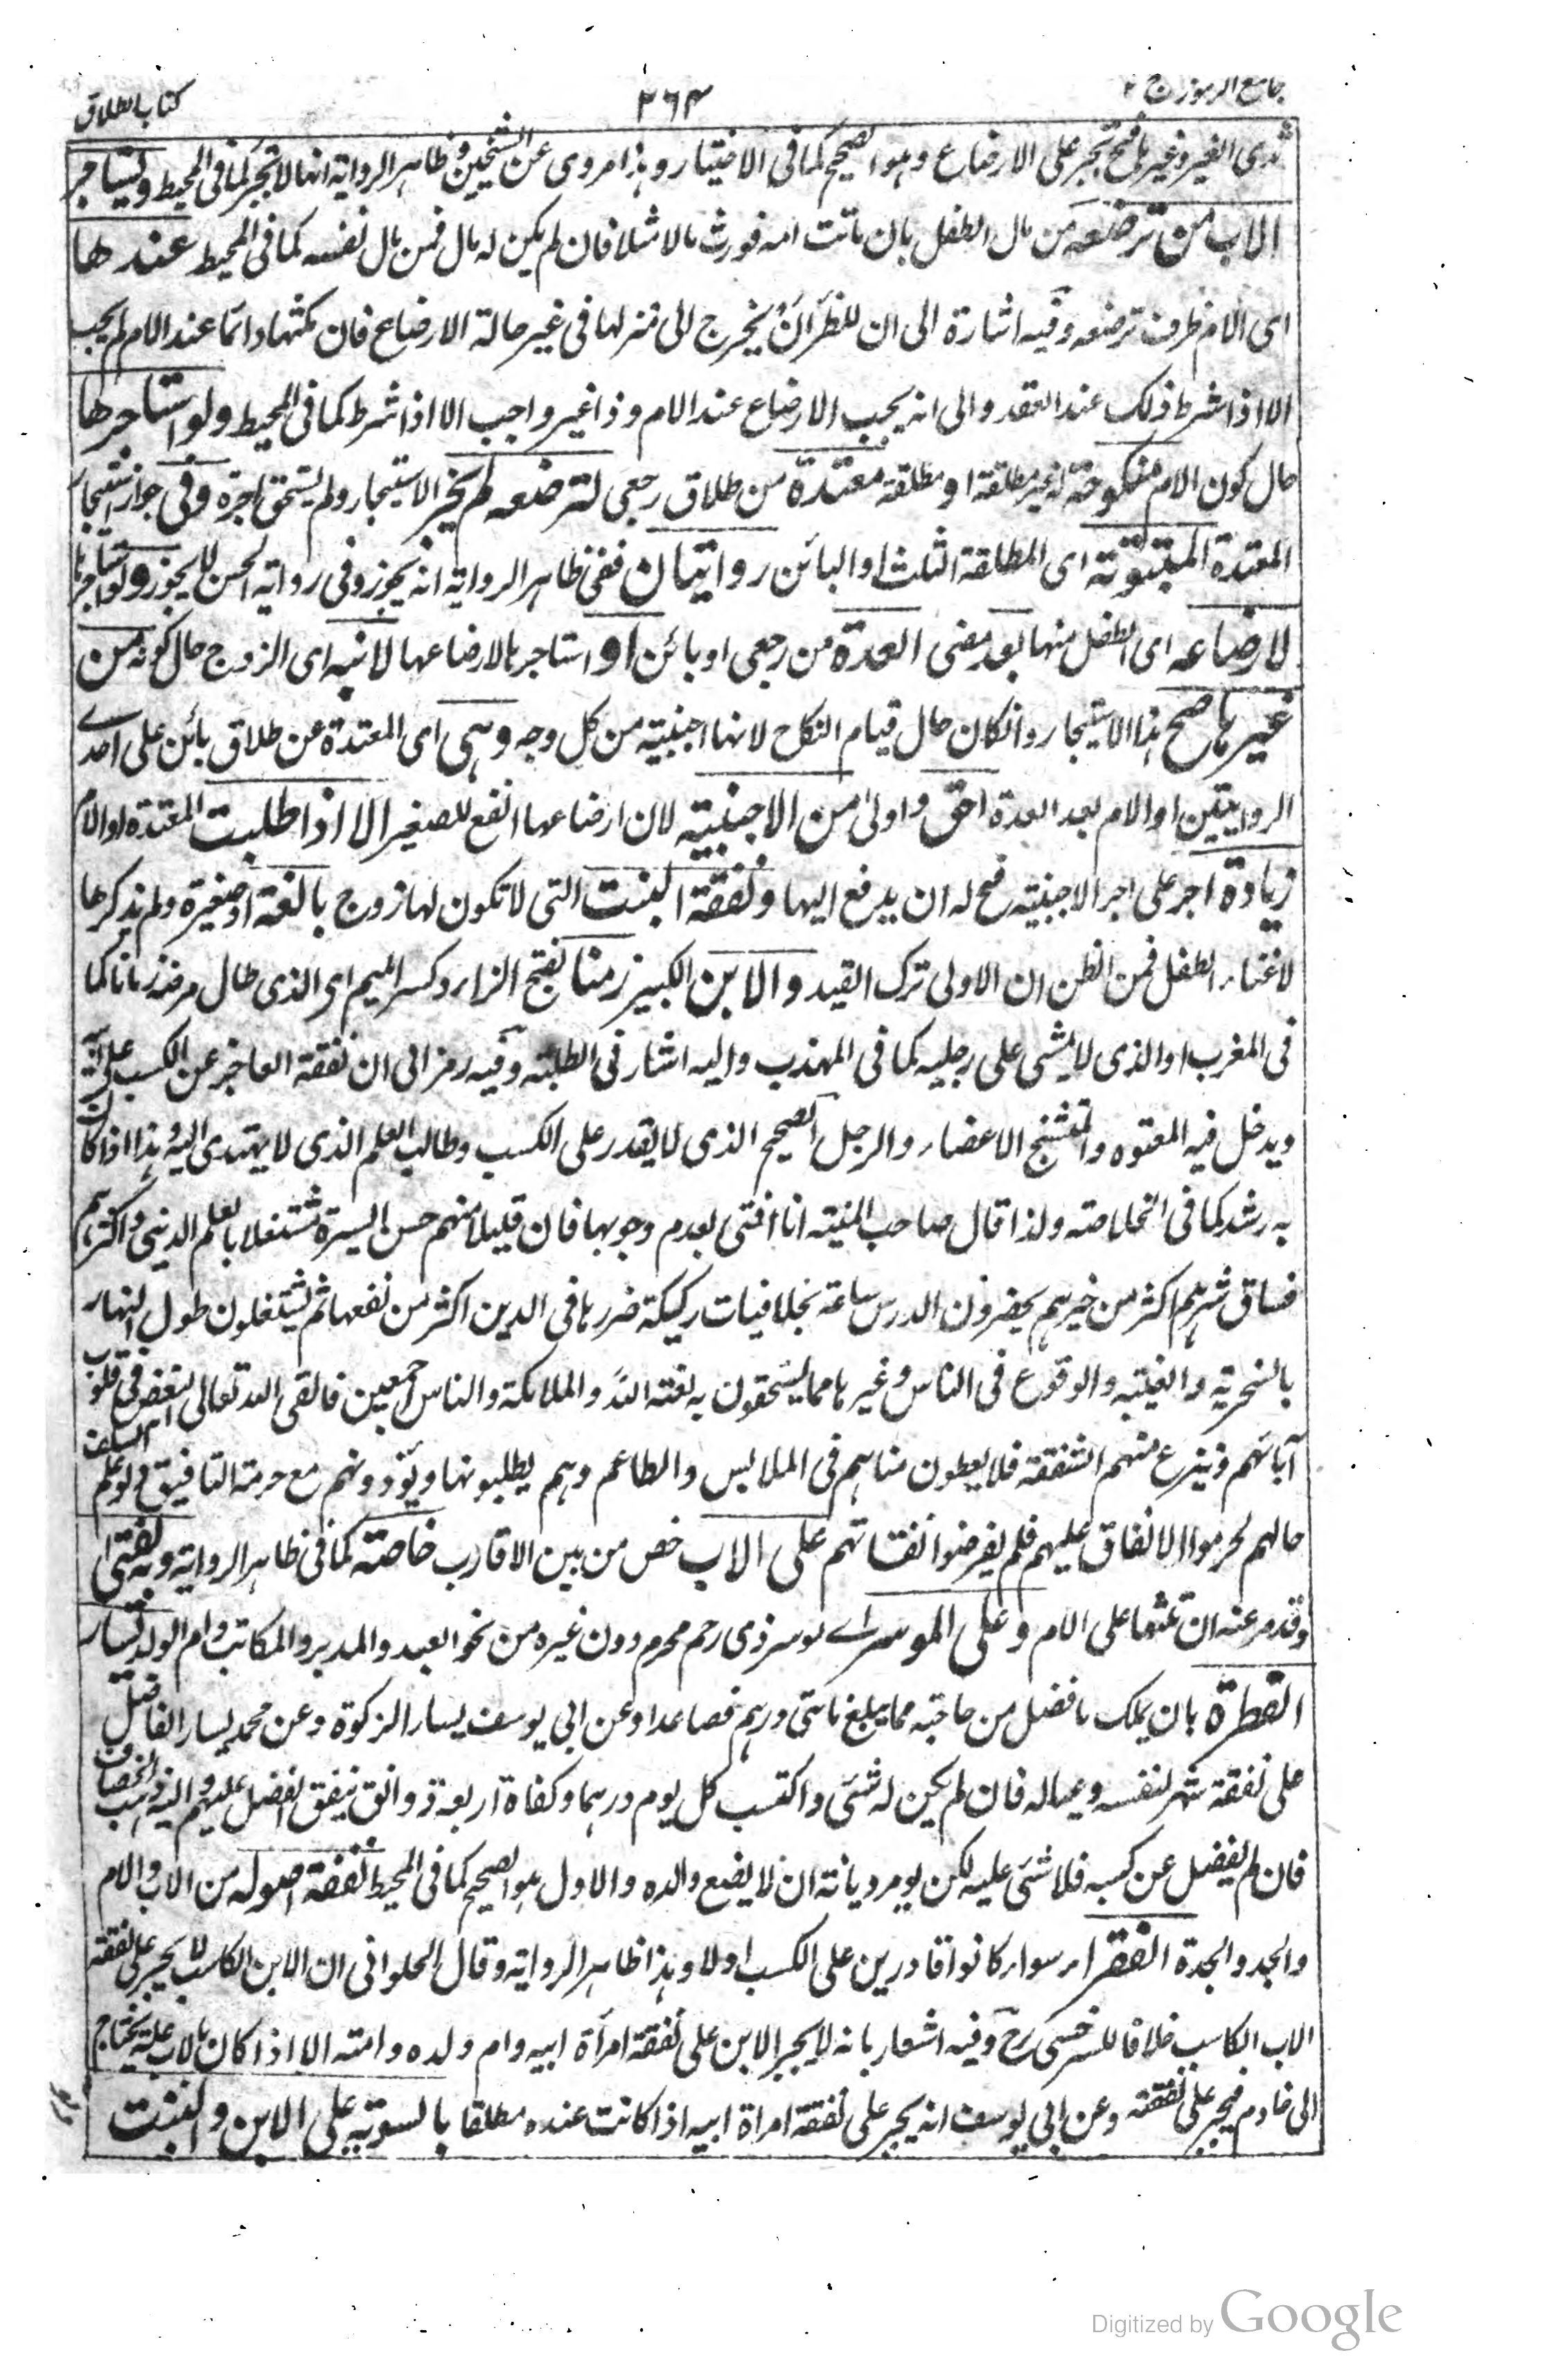 جامع الرموز ج ٢
٣٦٤
كتاب الطلاق
ثدى الغير وغيرها فح تجبر على الارضاع وهو الصحيح كما فى الاختيار وهذا مروى عن الشيخين وظاهر الرواية انها لا تجبر كما فى المحيط ويستاجر
الاب من ترضعه من مال الطفل بان ماتت امه فورث مالا مثلا فان لم يكن له مال فمن مال نفسه كما فى المحيط عندها
اى الام ظرف ترضعه وفيه اشارة الى ان للظئر ان يخرج الى منزلها فى غير حالة الارضاع فان مكثها دائما عند الام لم يجب
الا اذا شرط ذلك عند العقد والى انه يجب الارضاع عند الام وذا غير واجب الا اذا شرط كما فى المحيط ولو استاجرها
حال كون الام منكوحة له غير مطلقة او مطلقة معتدة من طلاق رجعى لترضعه لم يجز الاستيجار ولم يستحق اجرة وفى جواز استيجار
المعتدة المبتوتة اى المطلقة الثلث او البائن روايتان ففى ظاهر الرواية انه يجوز وفى رواية الحسن لا يجوز ولو استاجرها
لارضاعه اى الطفل منها بعد مضى العدة من رجعى او بائن او استاجرها لارضاعها لابنه اى الزوج حال كونه من
غيرها صح هذا الاستيجار وانكان حال قيام النكاح لانها اجنبية من كل وجه وهى اى المعتدة عن طلاق بائن على احدى
الروايتين او الام بعد العدة احق واولى من الاجنبية لان ارضاعها انفع للصغير الا اذا طلبت المعتدة او الام
زيادة اجر على اجر الاجنبية فح له ان يدفع اليها ونفقة البنت التى لا تكون لها زوج بالغة او صغيرة ولم يذكرها
لاغناء الطفل فمن الظن ان الاولى ترك القيد والابن الكبير زمنا بفتح الزاء وكسر الميم اى الذى طال مرضه زمانا كما
فى المغرب او الذى لا يمشى على رجليه كما فى المهذب واليه اشار فى الطلبة وفيه رمز الى ان نفقة العاجز عن الكسب على ابيه
ويدخل فيه المعتوه والمتشنج الاعضاء والرجل الصحيح الذى لا يقدر على الكسب وطالب العلم الذى لا يهتدى اليه وهذا اذا كان
به رشد كما فى الخلاصة ولذا قال صاحب المنية انا افتى بعدم وجوبها فان قليلا منهم حسن السيرة مشتغلا بالعلم الدينى واكثرهم
فساق شرهم اكثر من خيرهم يحضرون الدرس ساعة بخلافيات ركيكة ضررها فى الدين اكثر من نفعها ثم يشتغلون طول النهار
بالسخرية والغيبة والوقوع فى الناس وغيرها مما يستحقون به لعنة الله والملائكة والناس اجمعين فالقى الله تعالى البغض فى قلوب
آبائهم وينزع منهم الشفقة فلا يعطون مناهم فى الملابس والطاعم وهم يطلبونها ويؤذونهم مع حرمة التافيف فلو علم السلف
حالهم لحرموا الانفاق عليهم فلم يفرضوا نفقاتهم على الاب خص من بين الاقارب خاصة كما فى ظاهر الرواية وبه يفتى
وقد مر عنه ان ثلثها على الام وعلى الموسر اے موسر ذى رحم محرم دون غيره من نحو العبد والمدبر والمكاتب وام الولد يسار
الفطرة بان يملك ما فضل من حاجته مما يبلغ مائتى درهم فصاعدا وعن ابى يوسف يسار الزكوة وعن محمد يسار الفاضل
على نفقة شهر لنفسه وعياله فان لم يكن له شئ واكتسب كل يوم درهما وكفاه اربعة دوانق ينفق الفضل عليهم واليه ذهب الخصاف
فان لم يفضل عن كسبه فلا شئ عليه لكن يومر ديانة ان لا يضيع والده والاول هو الصحيح كما فى المحيط نفقة اصوله من الاب والام
والجد والجدة الفقراء سواء كانوا قادرين على الكسب اولا وهذا ظاهر الرواية وقال الحلوانى ان الابن الكاسب لا يجبر على نفقة
الاب الكاسب خلافا للسرخسى رح وفيه اشعار بانه لا يجبر الابن على نفقة امرأة ابيه وام ولده وامته الا اذا كان بالاب علة يحتاج
الى خادم فيجبر على نفقته وعن ابى يوسف انه يجبر على نفقة امراة ابيه اذا كانت عنده مطلقا بالسوية على الابن والبنت
Digitized by Google